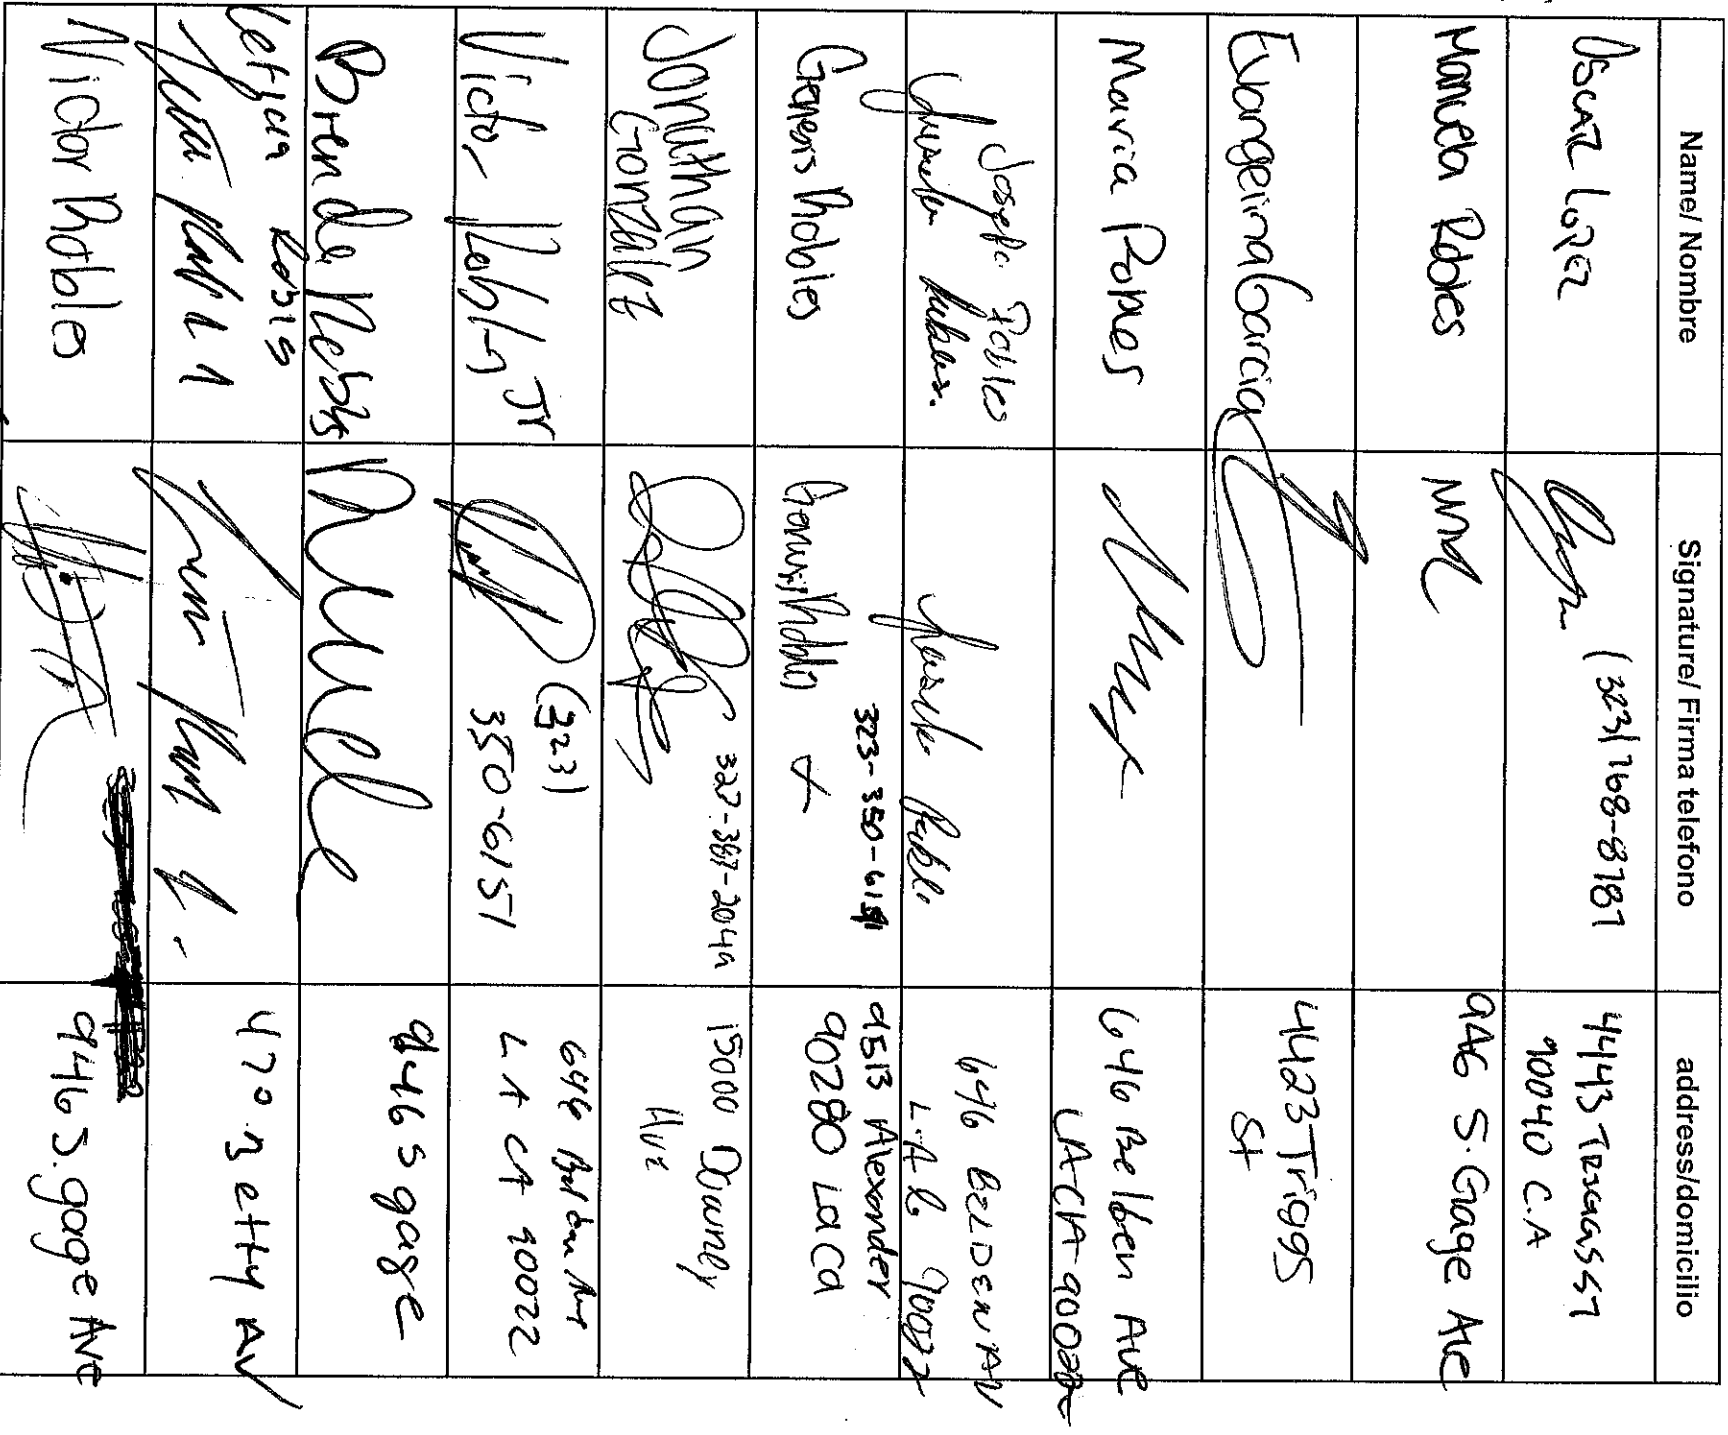 Name/ Nombre
Signature/ Firma telefono
address/domicilio
OSCAR LOPEZ
(323) 768-8787
90040 C.A
Manuela Robles
MMR
946 S. Gage Ave
Evangelina Garcia
4423 Triggs
St
Maria Robles
646 Belden Ave
LA CA 90022
Robles
646 BELDEN AV
90022
Genesis Robles
323-350-6151
9513 Alexander
90280 La Ca
Jonathan
Gonzalez
15000 Downey
Ave
Victor Robles Jr
(323)
350-6151
646 Belden Ave
LA CA 90022
Brenda Robles
946 S gage
Leticia Robles
470 Betty AV
Victor Robles
946 S. gage Ave